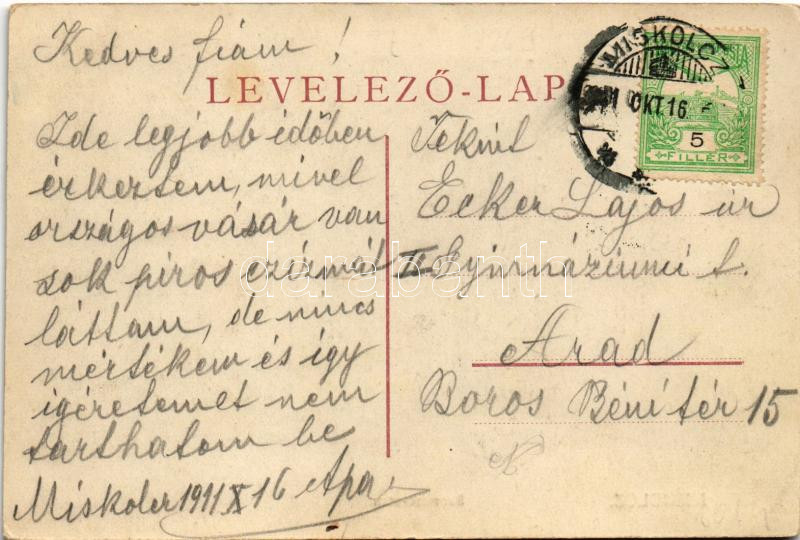 Kedves fiam!
LEVELEZŐ-LAP
Ide legjobb időben
érkeztem, mivel
országos vásár van
sok piros csizmát
láttam, de nincs
mértékem és igy
igéretemet nem
tarthatom be
Miskolcz 1911 X 16 Apa
MISKOLCZ
OKT 16
5
FILLÉR
Tekint
Ecker Lajos úr
II Gymnáziumi t.
Arad
Boros Béni tér 15
darabanth